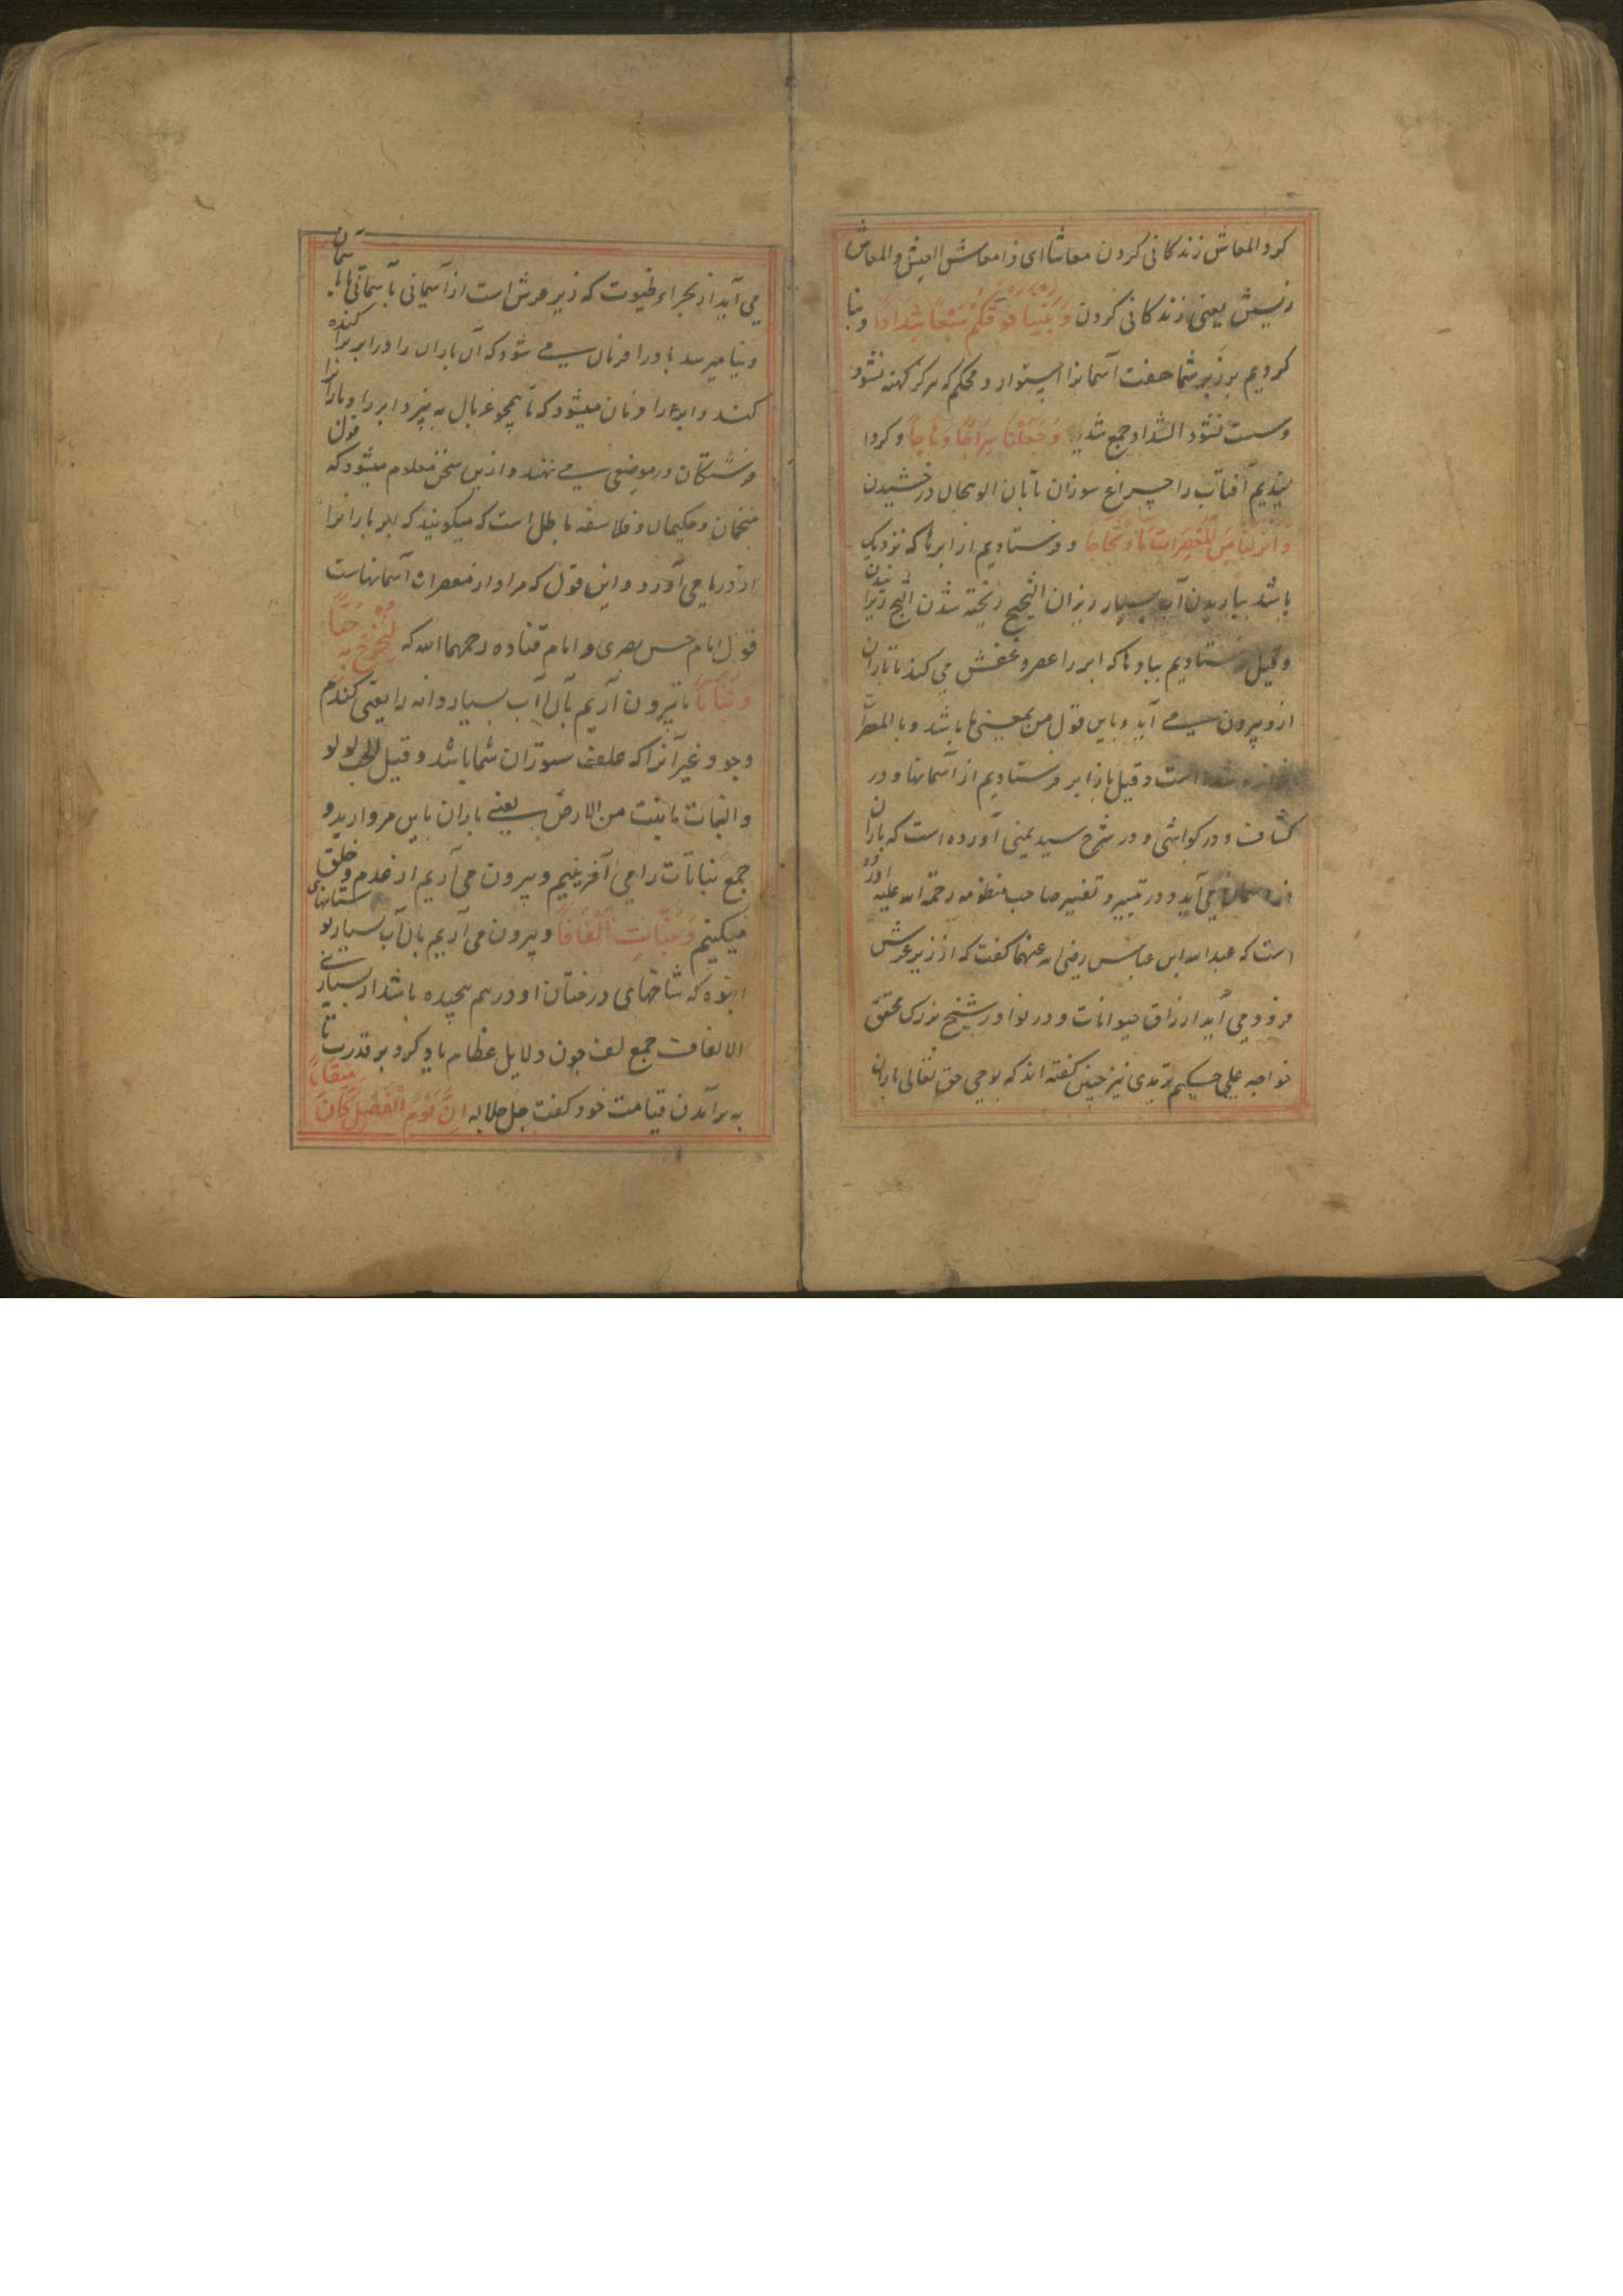 کرد المعاش زندکانی کردن معاشا ای ذا معاش العیش والمعاش
یعنی زندکانی کردن وَبَنَيْنَا فَوْقَكُمْ سَبْعًا شِدَادًا و بنا
کردیم بر زبر شما هفت آسمانرا استوار و محکم که هرکز کهنه نشود
و سست نشود الشداد جمع شدید وَجَعَلْنَا سِرَاجًا وَهَّاجًا و کردا
نیدیم آفتاب را چراغ سوزان تابان الوهجان درخشیدن
وَأَنْزَلْنَا مِنَ الْمُعْصِرَاتِ مَاءً ثَجَّاجًا و فرستادیم از ابرها که نزدیک
باشد بباریدن آب بسیار ریزان الثجیج ریخته شدن الثج ریزانیدن
وقیل فرستادیم ببادها که ابر را عصر و غفش می کند تا باران
ازو بیرون می آید و باین قول من بمعنی با باشد و با المعصرات
است وقیل باز ابر فرستادیم از آسمانها و در
کشاف و در کواشی و در شرح سید یمنی آورده است که باران
از آسمان می آید و در تیسیر و تفسیر صاحب منظومه رحمة الله علیه آورده
است که عبدالله ابن عباس رضی الله عنهما کفت که از زیر عرش
فرود می آید ارزاق حیوانات و در نوادر شیخ بزرک محقق
خواجه علی حکیم ترمدی نیز چنین کفته اند که بوحی حق تعالی باران
می آید از بحراء که زیر عرش است از آسمانی بآسمانی تا بآسمان
دنیا میرسد باد را فرمان می شود که آن باران را در ابر پراکنده
کند و ابر را فرمان میشود که تا همچو غربال به بیزد ابر را و بارانرا
فرشتکان در موضعی می نهند و ازین سخن معلوم میشود که قول
منجمان و حکیمان و فلاسفه باطل است که میکویند که ابر بارانرا
از دریا می آورد و این قول که مراد از معصرات آسمانهاست
قول امام حسن بصری و امام قتاده رحمهما الله که لِنُخْرِجَ بِهِ حَبًّا
وَنَبَاتًا تا بیرون آریم بآن آب بسیار دانه را یعنی کندم
و جو و غیر آنرا که علف ستوران شما باشد وقیل الحب لولو
والنبات ما ینبت من الارض یعنی باران باین مروارید و
جمع نباتات را می آفرینیم و بیرون می آریم از عدم و خلق
میکنیم وَجَنَّاتٍ أَلْفَافًا و بیرون می آریم بآن آب بسیار بوستانهای
انبوه که شاخهای درختان او در هم پیچیده باشد از بسیاری
الالفاف جمع لف چون دلایل عظام یاد کرد بر قدرت تا
به برآمدن قیامت خود کفت جل جلاله إِنَّ يَوْمَ الْفَصْلِ كَانَ مِيقَاتًا